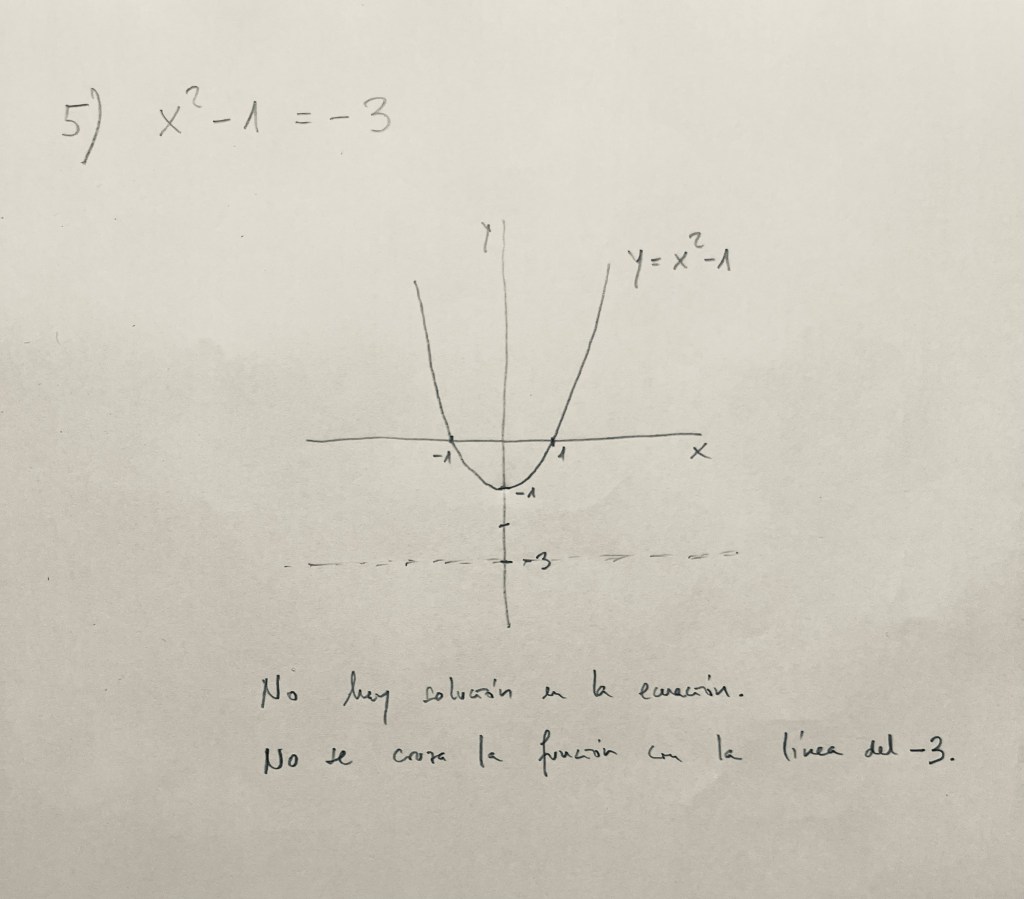 5) x² - 1 = - 3
y
y = x² - 1
-1
1
x
-1
-3
No hay solución en la ecuación.
No se cruza la función con la línea del -3.